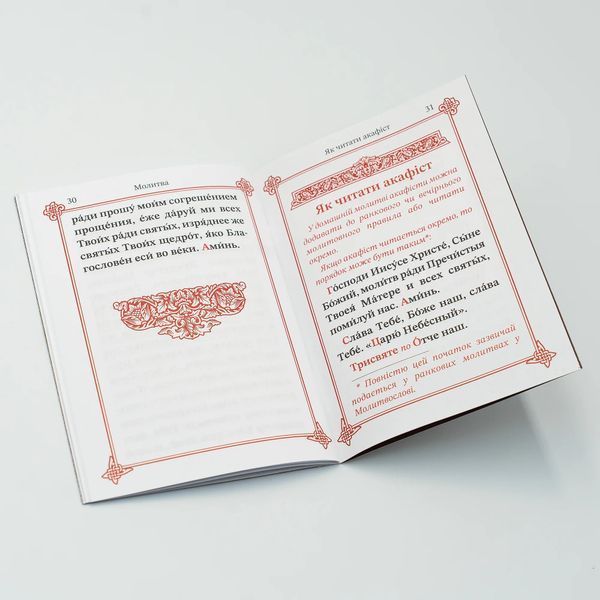 30
Молитва
ра́ди прошу́ мои́м согреше́нием
проще́ния, е́же да́руй ми всех
Твои́х ра́ди святы́х, изря́днее же
святы́х Твои́х щедро́т, я́ко Бла-
гослове́н еси́ во ве́ки. Ами́нь.
31
Як читати акафіст
Як читати акафіст
У домашній молитві акафісти можна
додавати до ранкового чи вечірнього
молитовного правила або читати
окремо.
Якщо акафіст читається окремо, то
порядок може бути таким*:
Го́споди Иису́се Христе́, Сы́не
Бо́жий, моли́тв ра́ди Пречи́стыя
Твоея́ Ма́тере и всех святы́х,
поми́луй нас. Ами́нь.
Сла́ва Тебе́, Бо́же наш, сла́ва
Тебе́. «Царю́ Небе́сный».
Трисвяте по О́тче наш.
* Повністю цей початок зазвичай
подається у ранкових молитвах у
Молитвослові.